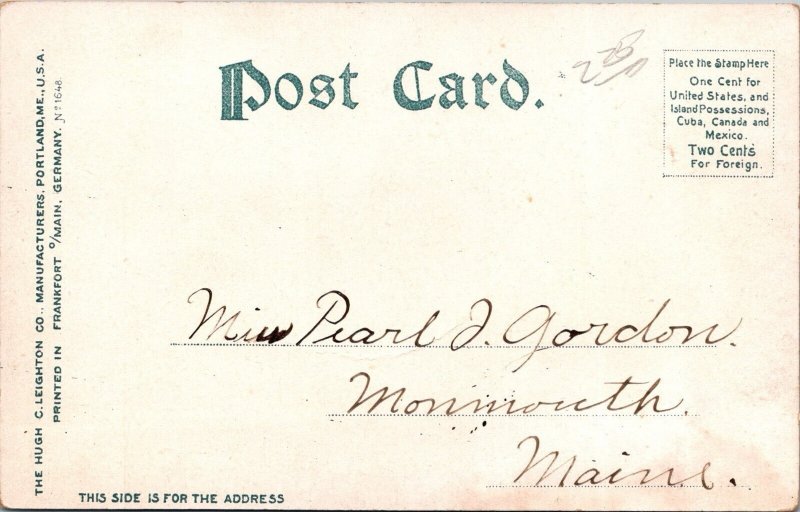 Post Card.
Place the Stamp Here
One Cent for
United States, and
Island Possessions,
Cuba, Canada and
Mexico.
Two Cents
For Foreign.
THE HUGH C. LEIGHTON CO., MANUFACTURERS, PORTLAND, ME., U.S.A.
PRINTED IN FRANKFORT o/MAIN, GERMANY. No 1648.
Miss Pearl I. Gordon.
Monmouth.
Maine.
THIS SIDE IS FOR THE ADDRESS